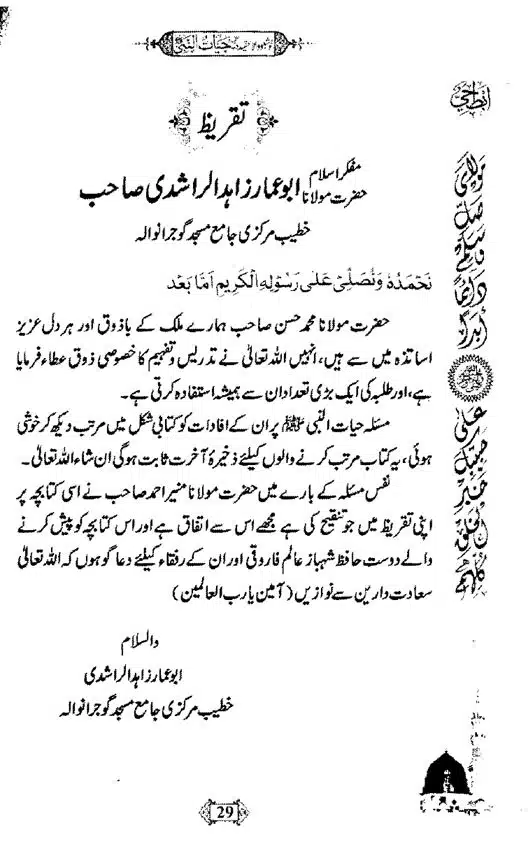 حیات النبیؐ
تقریظ
مفکر اسلام
حضرت مولانا ابو عمار زاہد الراشدی صاحب
خطیب مرکزی جامع مسجد گوجرانوالہ
نَحْمَدُہٗ وَنُصَلِّیْ عَلیٰ رَسُوْلِهِ الْکَرِیْمِ اَمَّا بَعْد
حضرت مولانا محمد حسن صاحب ہمارے ملک کے باذوق اور ہر دل عزیز
اساتذہ میں سے ہیں، انہیں اللہ تعالیٰ نے تدریس و تفہیم کا خصوصی ذوق عطاء فرمایا
ہے، اور طلبہ کی ایک بڑی تعداد ان سے ہمیشہ استفادہ کرتی ہے۔
مسئلہ حیات النبی ﷺ پر ان کے افادات کو کتابی شکل میں مرتب دیکھ کر خوشی
ہوئی، یہ کتاب مرتب کرنے والوں کیلئے ذخیرۂ آخرت ثابت ہوگی ان شاء اللہ تعالیٰ۔
نفس مسئلہ کے بارے میں حضرت مولانا منیر احمد صاحب نے اسی کتابچہ پر
اپنی تقریظ میں جو تنقیح کی ہے مجھے اس سے اتفاق ہے اور اس کتابچہ کو پیش کرنے
والے دوست حافظ شہباز عالم فاروقی اور ان کے رفقاء کیلئے دعا گو ہوں کہ اللہ تعالیٰ
سعادت دارین سے نوازیں (آمین یا رب العالمین)
والسلام
ابو عمار زاہد الراشدی
خطیب مرکزی جامع مسجد گوجرانوالہ
مولای صل وسلم دائما أبدا
علی حبیبک خیر الخلق کلهم
29